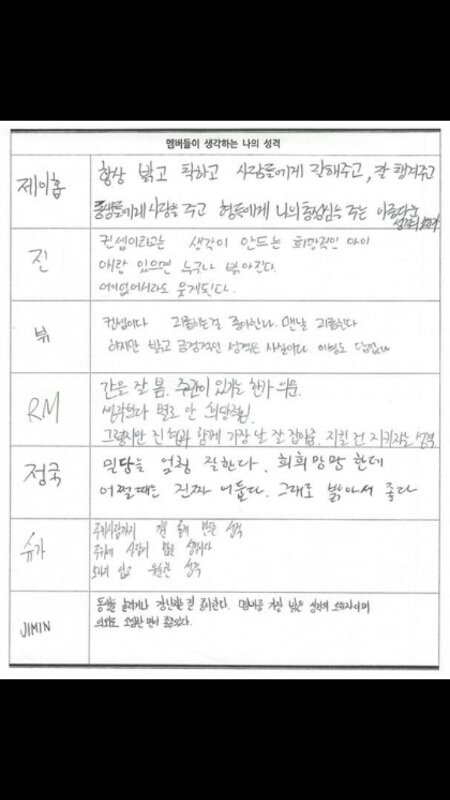 멤버들이 생각하는 나의 성격
제이홉
항상 밝고 착하고 사람들에게 잘해주고, 잘 챙겨주고
동생들에게 사랑을 주고 형들에게 나의 주는 아름다운
진
컨셉이라고는 생각이 안드는 희망적인 아이
얘랑 있으면 누구나 밝아진다.
어이없어서라도 웃게된다.
뷔
컨셉이다 괴롭히는걸 좋아한다. 맨날 괴롭힌다
하지만 밝고 긍정적인 성격은 사실이다. 이형도 답없다
RM
간을 잘 봄. 주관이 있기는 한가 의문.
생각보다 별로 안 희망적임.
그렇지만 진 형과 함께 가장 날 잘 잡아줌. 지킬 건 지키자는 성격
정국
밀당을 엄청 잘한다. 희희망망 한데
어쩔때는 진짜 어둡다. 그래도 밝아서 좋다
슈가
주위사람까지 기분 좋게 만드는 성격
주위에 사람이 많은 성격이다
성격
JIMIN
동생들 놀리거나 장난치는걸 좋아한다. 멤버중 가장 밝은 성격의 소유자이며